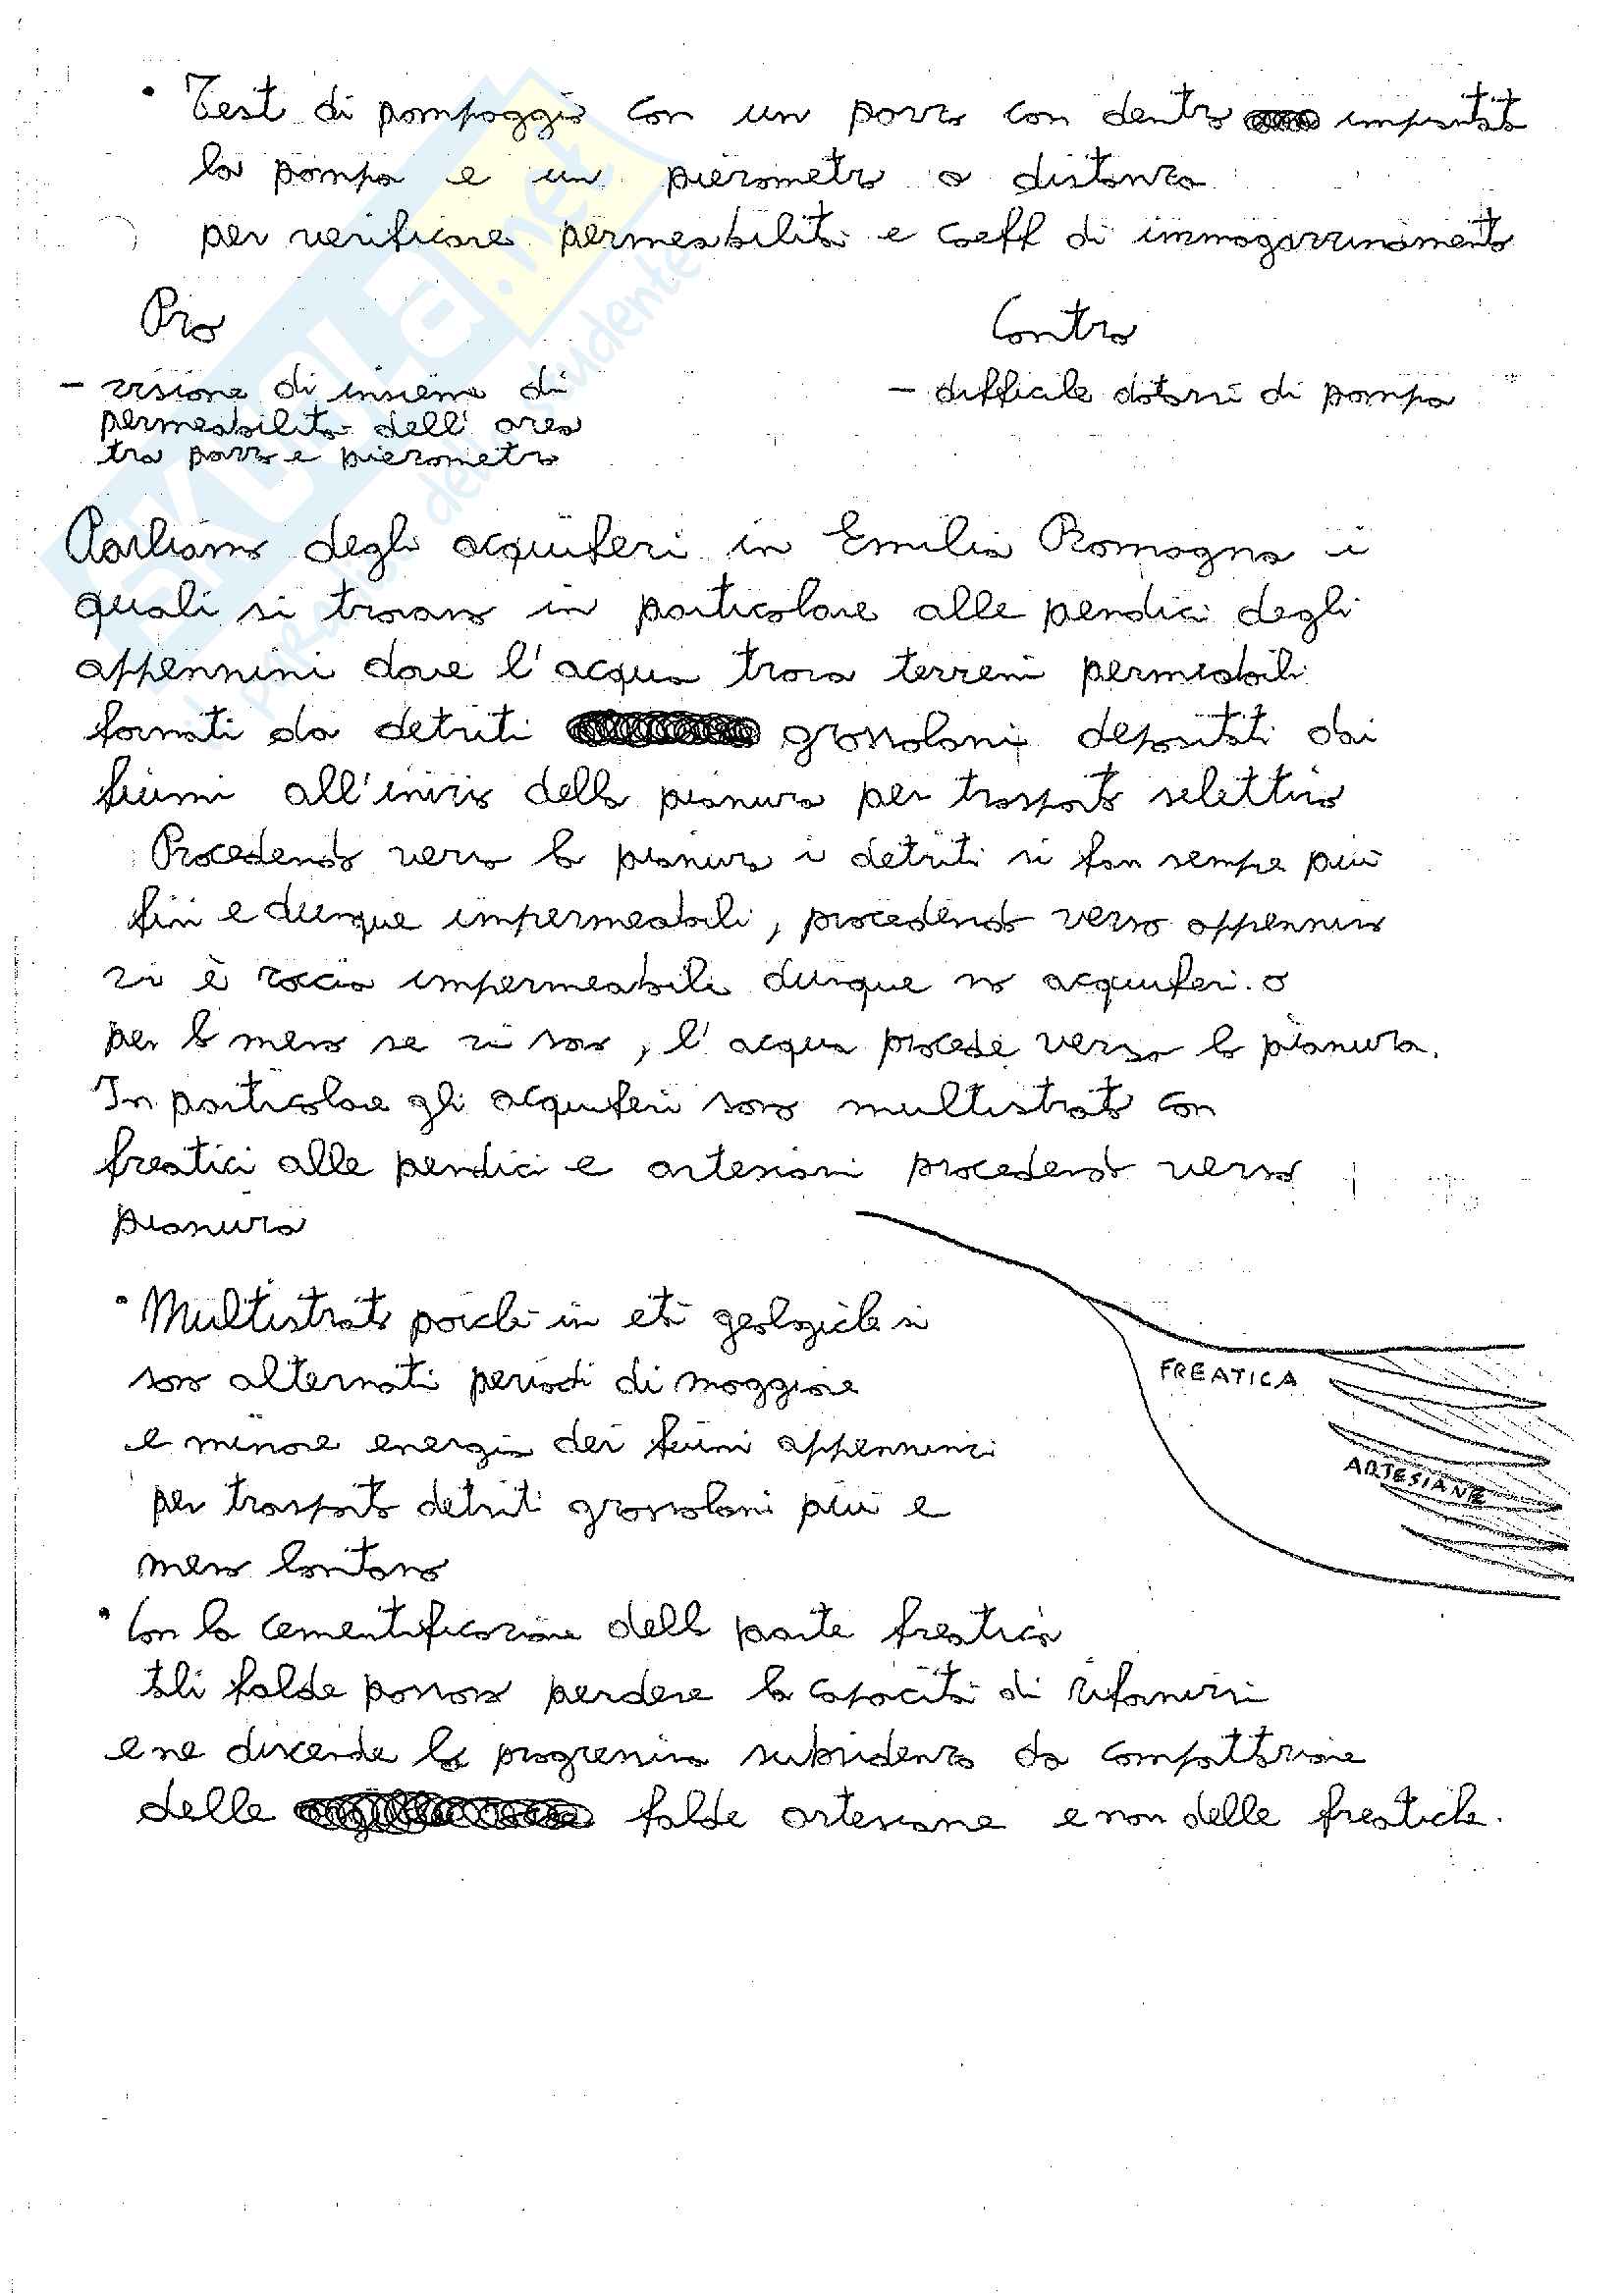 • Test di pompaggio con un pozzo con dentro impiantata
la pompa e un piezometro a distanza
per verificare permeabilità e coeff di immagazzinamento
Pro
Contro
- visione di insieme di
permeabilità dell' area
tra pozzo e piezometro
- difficile dotarsi di pompa
Parliamo degli acquiferi in Emilia Romagna i
quali si trovano in particolare alle pendici degli
appennini dove l'acqua trova terreni permeabili
formati da detriti grossolani depositati dai
fiumi all'inizio della pianura per trasporto selettivo
Procedendo verso la pianura i detriti si fan sempre più
fini e dunque impermeabili, procedendo verso appennino
vi è roccia impermeabili dunque no acquiferi. o
per lo meno se vi sono, l' acqua procede verso la pianura.
In particolare gli acquiferi sono multistrato con
freatici alle pendici e artesiani procedendo verso
pianura
• Multistrato poichè in età geologiche si
son alternati periodi di maggiore
e minore energia dei fiumi appenninici
per trasporto detriti grossolani più e
meno lontano
• Con la cementificazione della parte freatica
tali falde possono perdere la capacità di rifornirsi
e ne discende la progressiva subsidenza da compattazione
delle falde artesiane e non delle freatiche.
FREATICA
ARTESIANE
SKUOLA.net